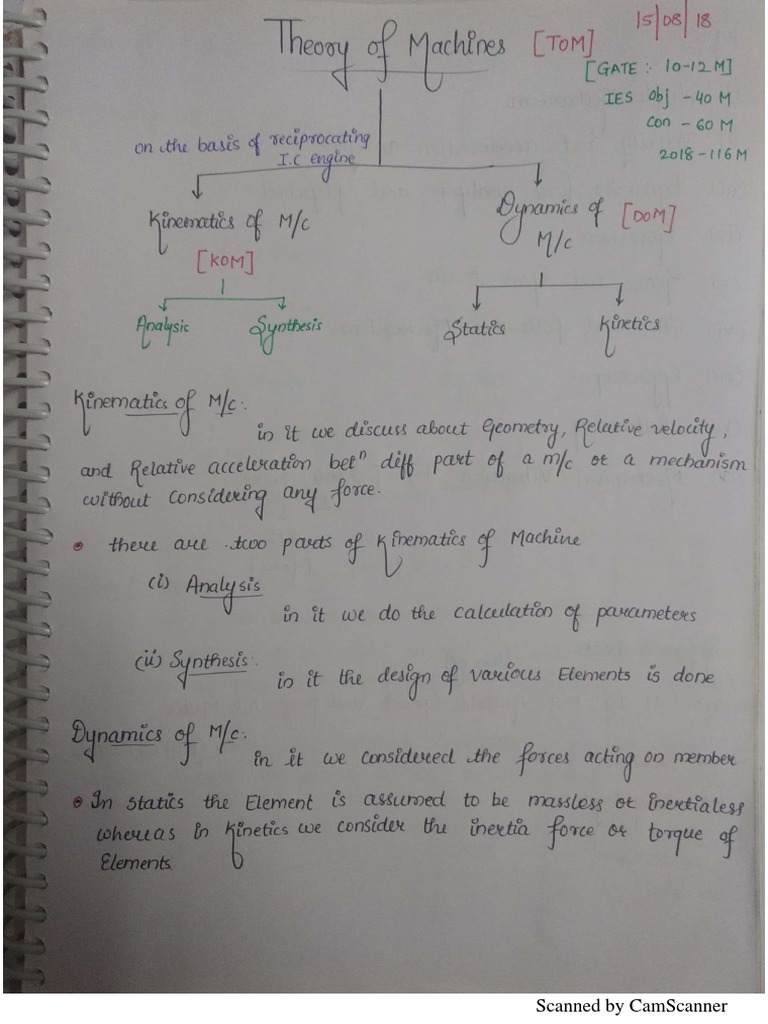 15/08/18
Theory of Machines [TOM]
[GATE : 10-12 M]
IES Obj - 40 M
Con - 60 M
2018 - 116 M
on the basis of reciprocating
I.C engine
Kinematics of M/c
[KOM]
Dynamics of [DOM]
M/c
Analysis Synthesis
Statics Kinetics
Kinematics of M/c:
in it we discuss about Geometry, Relative velocity,
and Relative acceleration betⁿ diff part of a m/c or a mechanism
without considering any force.
• there are two parts of Kinematics of Machine
(i) Analysis
in it we do the calculation of parameters
(ii) Synthesis:
in it the design of various Elements is done
Dynamics of M/c:
in it we considered the forces acting on member
• In statics the Element is assumed to be massless or inertialess
whereas in Kinetics we consider the inertia force or torque of
Elements.
Scanned by CamScanner